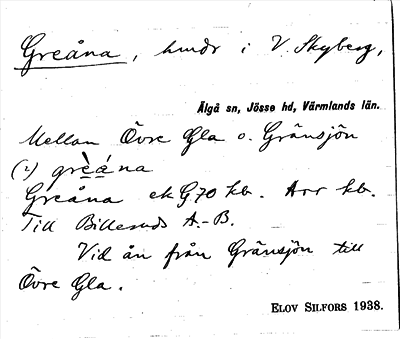 Greåna, hmdr i V. Skyberg,
Älgå sn, Jösse hd, Värmlands län.
Mellan Övre Gla o. Gränsjön
(2) grèána
Greåna ek G.70 kb. Arr kb.
Till Billeruds A.-B.
Vid ån från Gränsjön till
Övre Gla.
ELOV SILFORS 1938.